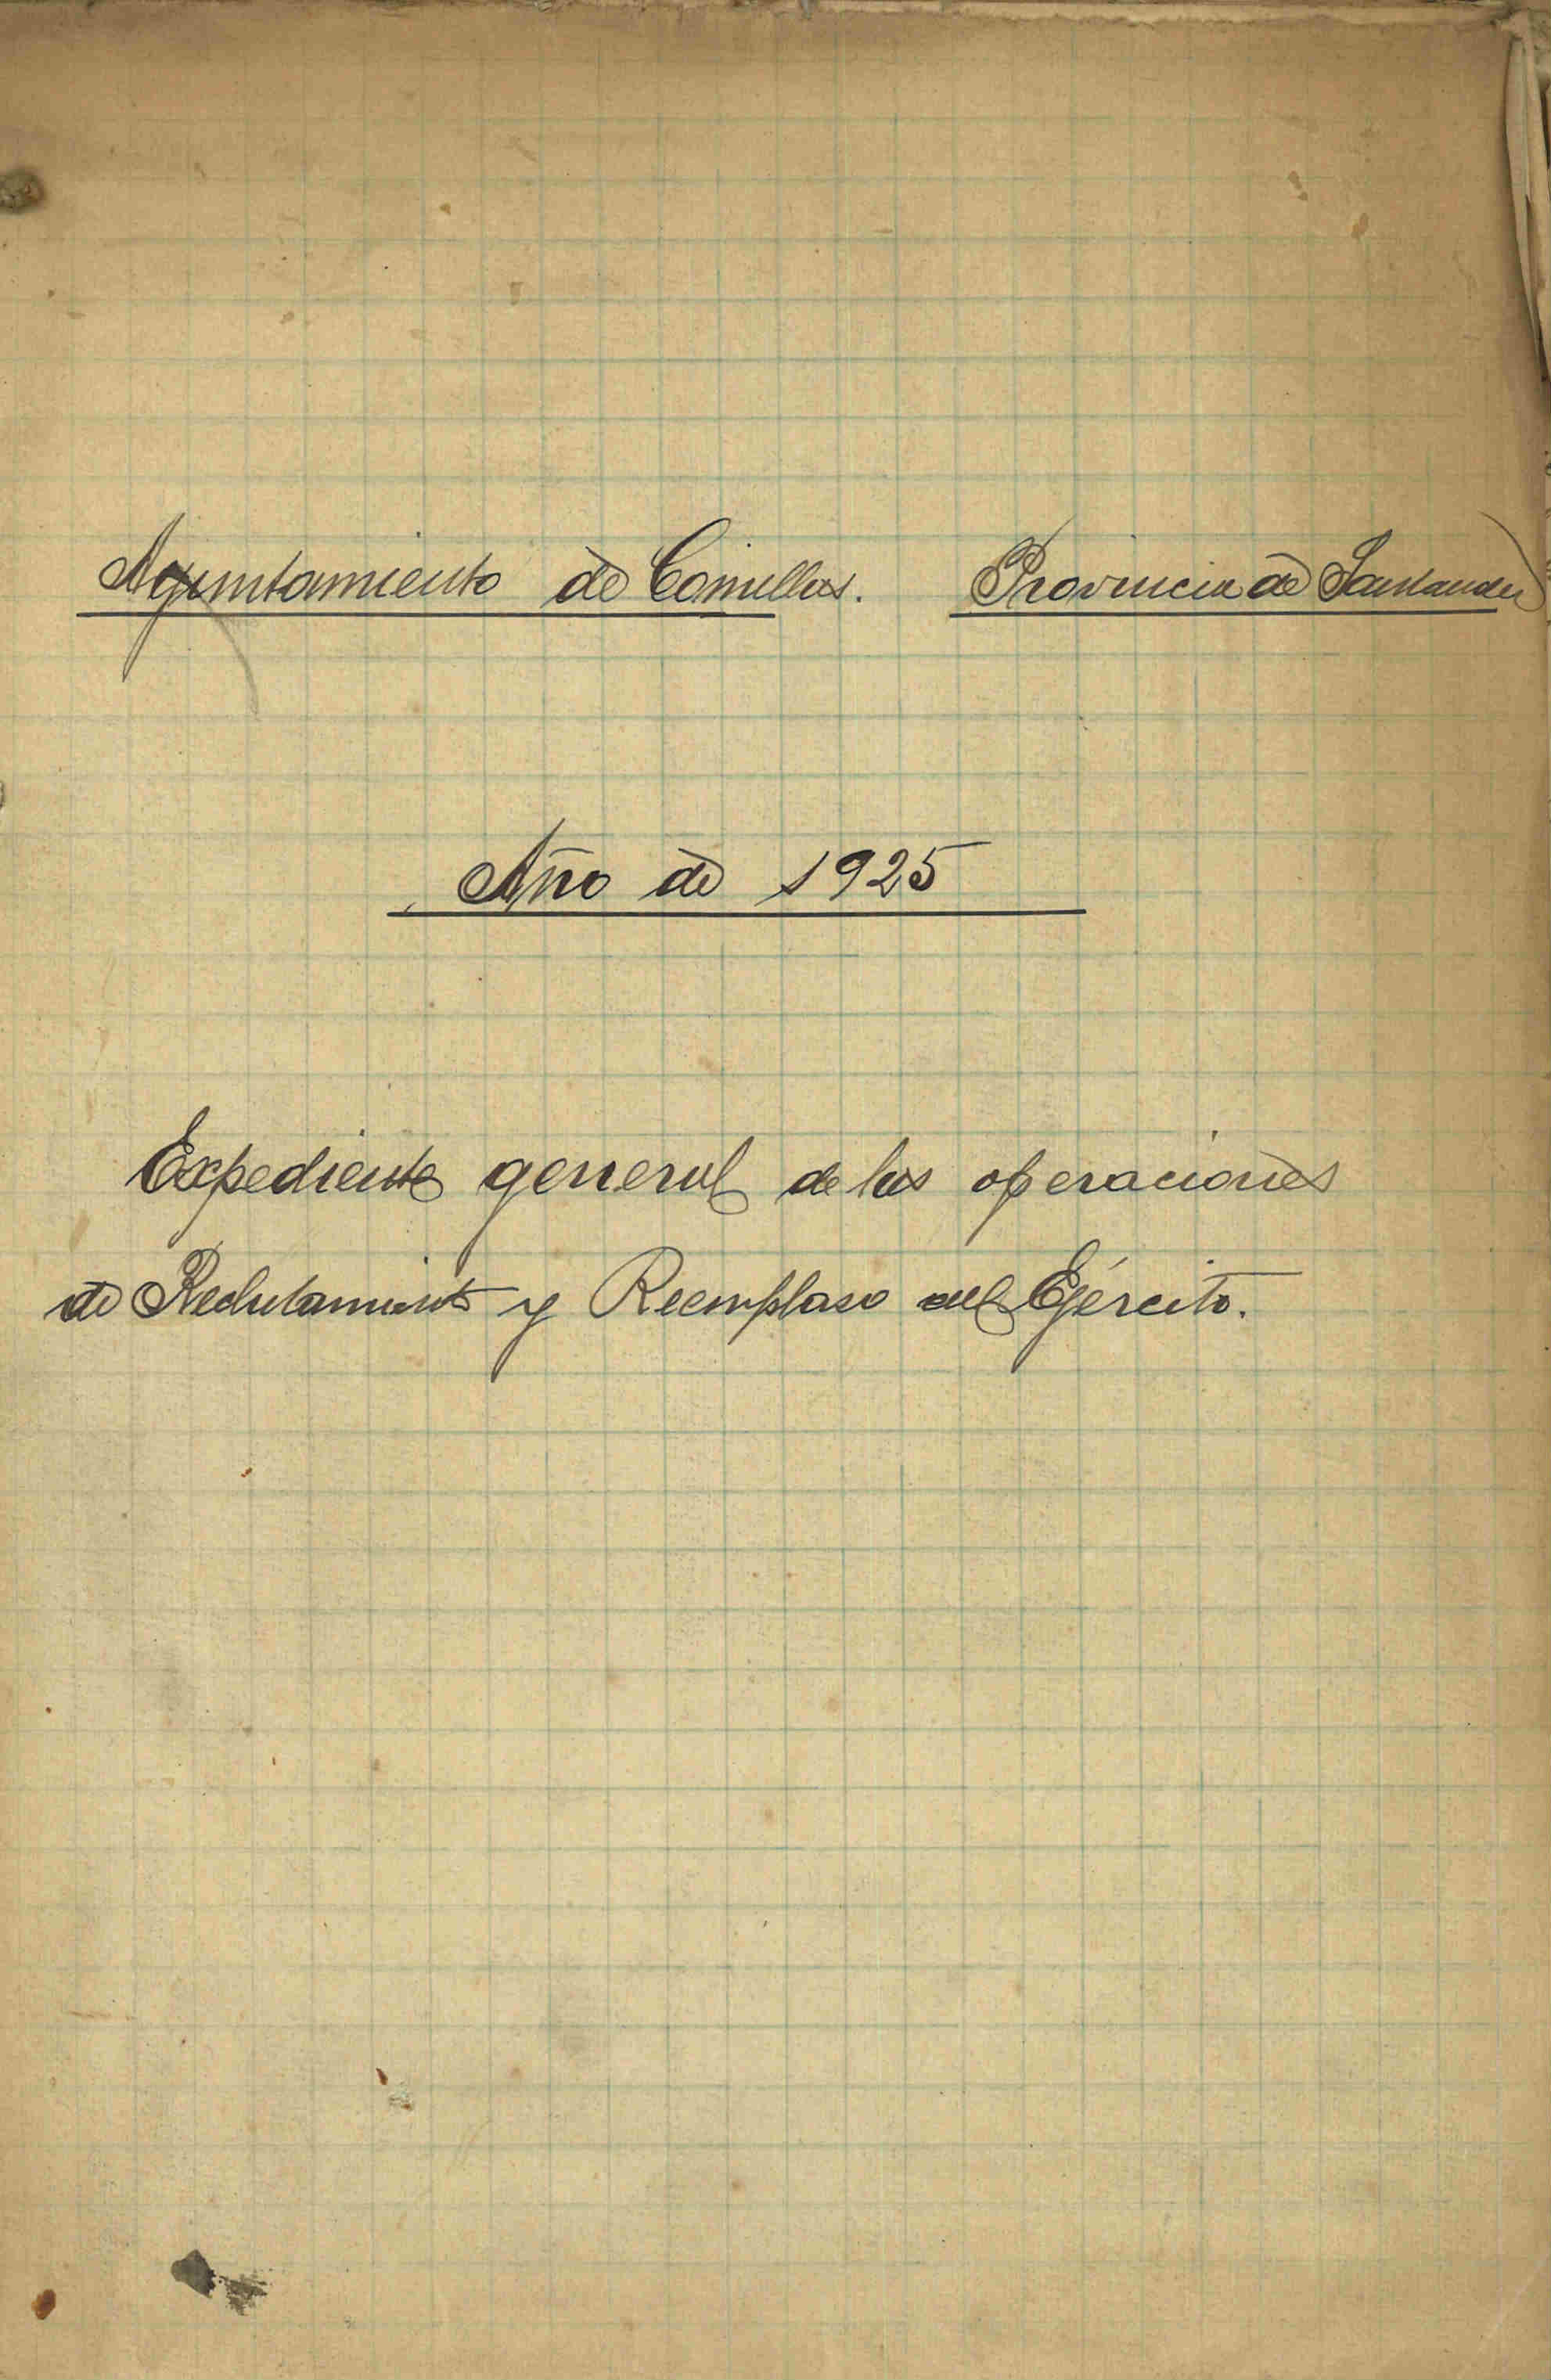 Ayuntamiento de Comillas. Provincia de Santander
Año de 1925
Expediente general de las operaciones
de Reclutamiento y Reemplaso del Ejército.